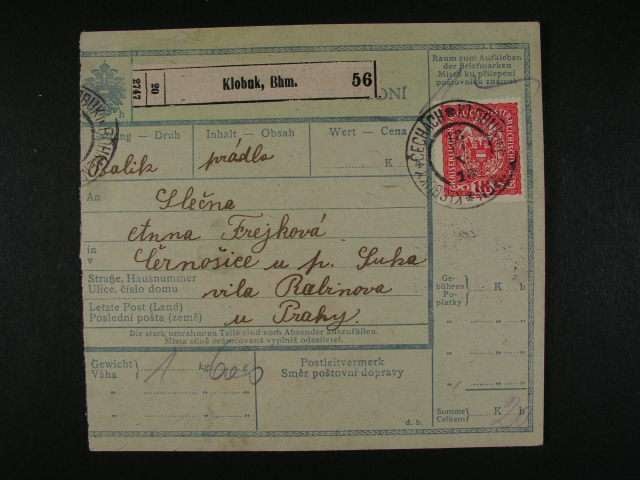 2747
20
Klobuk, Bhm. 56
Raum zum Aufkleben
der Briefmarken
Místo ku přilepení
poštovních známek
Inhalt — Obsah
Wert — Cena
K
Balík prádlo
An
Slečna
Anna Frejková
in
v
Černošice u p. Suka
Straße, Hausnummer
Ulice, číslo domu
vila Rabinova
Letzte Post (Land)
Poslední pošta (země)
u Prahy.
Die stark umrahmten Teile sind vom Absender auszufüllen.
Místa silně orámovaná vyplniž odesílatel.
Gebühren
Poplatky
K h
Gewicht
Váha
1
Postleitvermerk
Směr poštovní dopravy
Summe
Celkem
K
d. b.